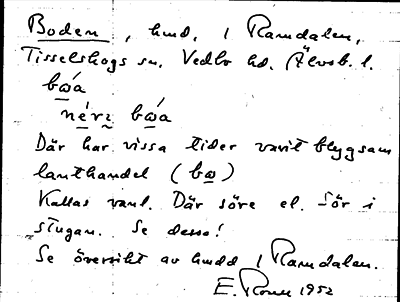 Boden, hmd, i Ramdalen,
Tisselskogs sn. Vedbo hd. Älvsb. l.
bώa
nérɩ bώa
Där har vissa tider varit blygsam
lanthandel (bω)
Kallas vanl. Där söre el. Sör i
stugan. Se dessa!
Se översikt av hmdd i Ramdalen.
E. 1952